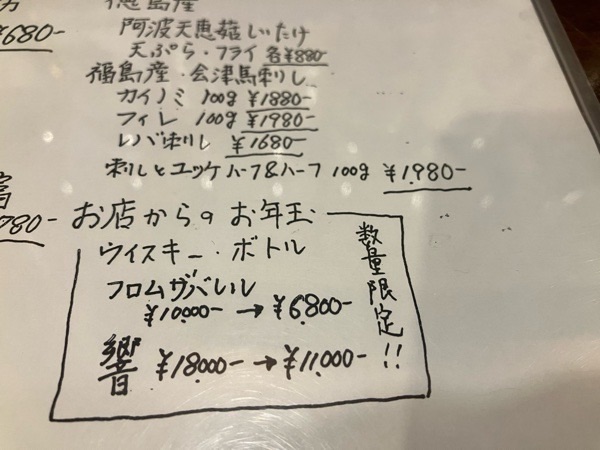 ¥680-
徳島産
阿波天恵菇しいたけ
天ぷら・フライ 各¥880-
福島産・会津馬刺し
カイノミ 100g ¥1880-
フィレ 100g ¥1980-
レバ刺し ¥1680-
刺しとユッケ ハーフ&ハーフ 100g ¥1.980-
780-
お店からの お年玉
ウイスキー・ボトル
フロムザバレル
¥10.000- → ¥6.800-
響 ¥18.000- → ¥11.000-
数量限定!!